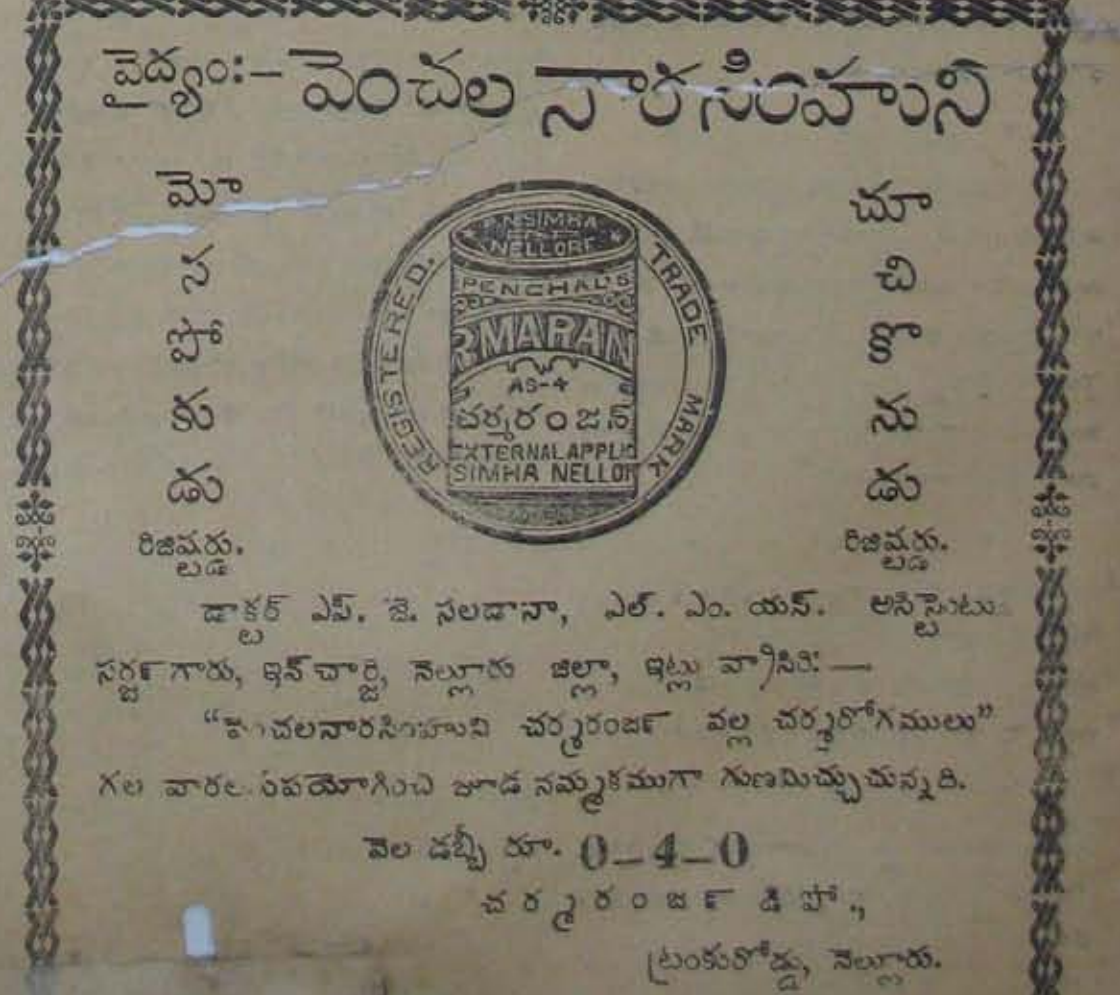 వైద్యం:— పెంచల నారసింహుని
మో
స
పో
కు
డు
రిజిష్టర్డు.
REGISTERED. TRADE MARK
P.N.SIMHA
NELLORE
PENCHAL'S
RMARAN
AS-4
చర్మరంజన్
EXTERNAL APPLIC
SIMHA NELLOR
చూ
చి
కొ
ను
డు
రిజిష్టర్డు.
డాక్టర్ ఎఫ్. జె. సలడానా, ఎల్. ఎం. యస్. అసిస్టెంటు
సర్జ౯ గారు, ఇన్ చార్జి, నెల్లూరు జిల్లా, ఇట్లు వ్రాసిరి:—
“పెంచలనారసింహుని చర్మరంజ౯ వల్ల చర్మరోగములు”
గల వారల కుపయోగించి జూడ నమ్మకముగా గుణమిచ్చుచున్నది.
వెల డబ్బీ రూ. 0—4—0
చర్మరంజ౯ డిపో,
ట్రంకురోడ్డు, నెల్లూరు.